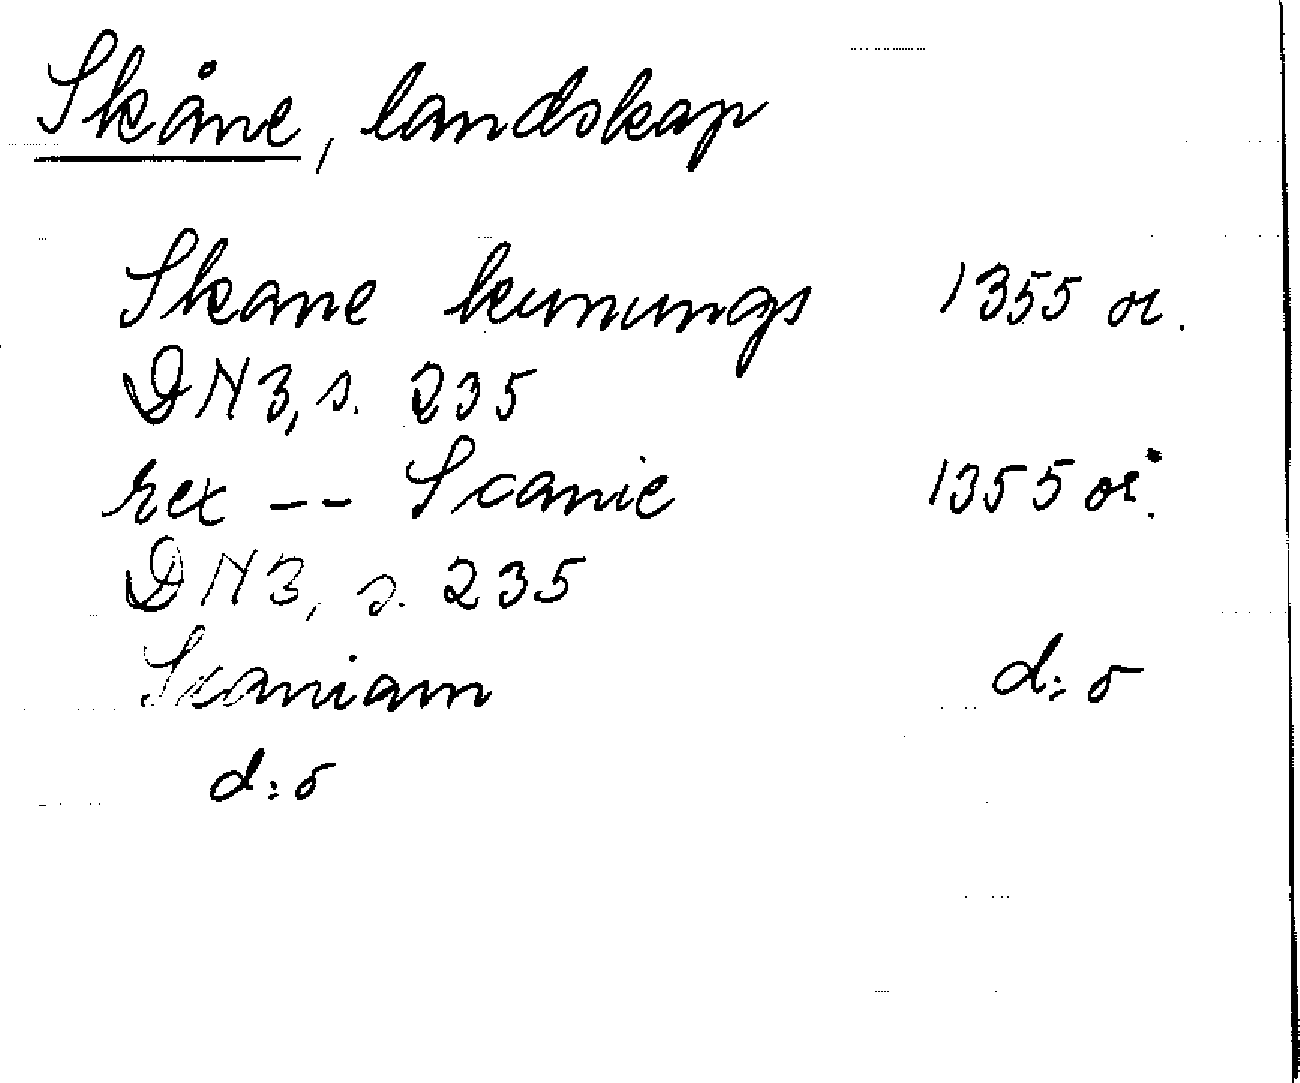 Skåne, landskap
Skane kunungs 1355 or.
DN 3, s. 235
rex -- Scanie 1355 or.
DN 3, s. 235
Scaniam d:o
d:o